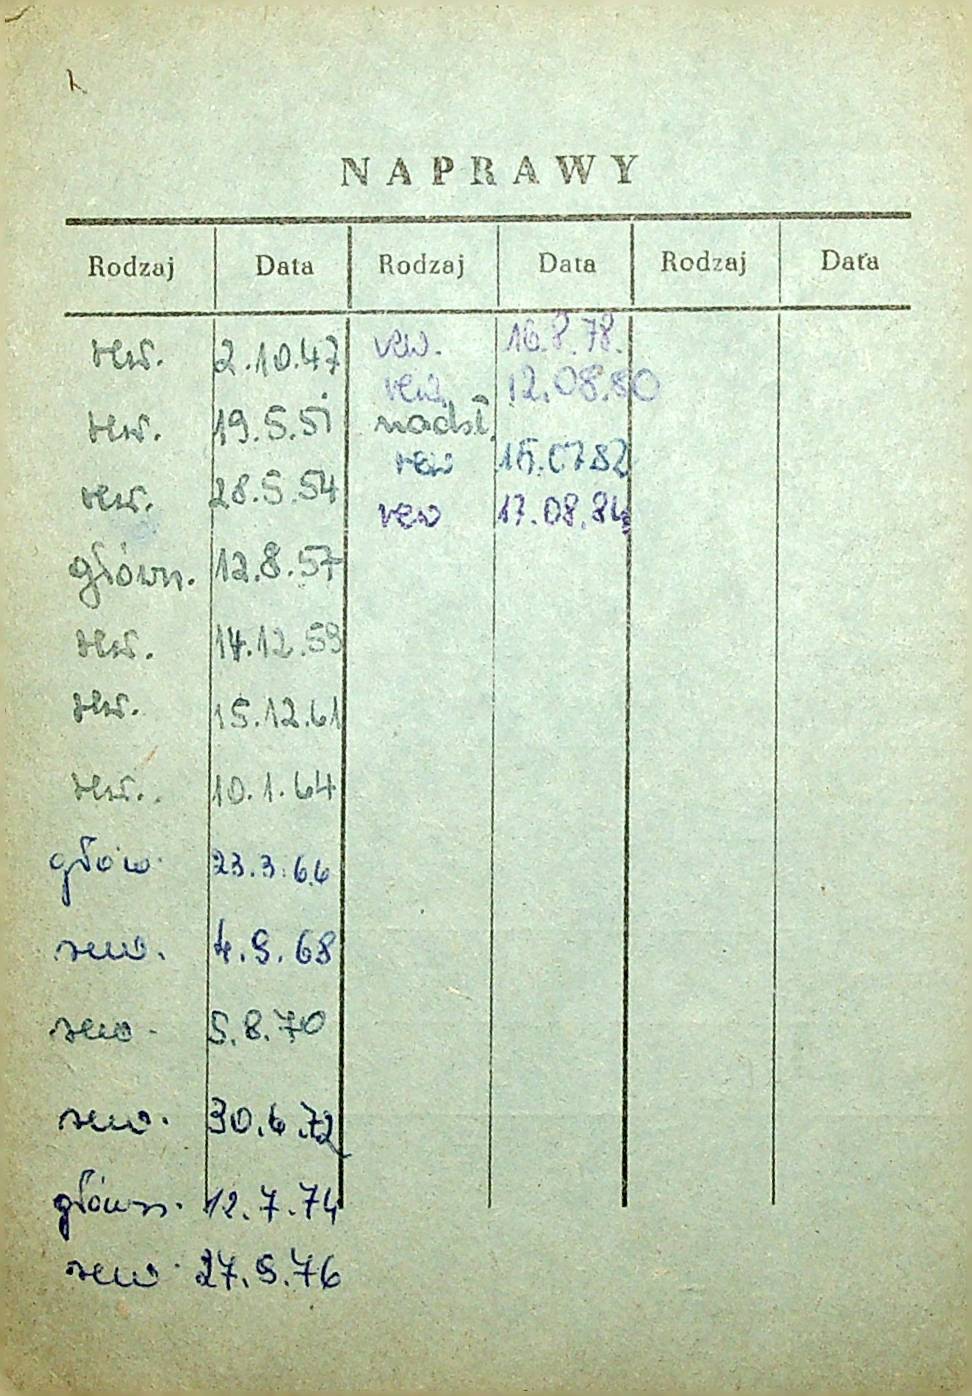 NAPRAWY
Rodzaj Data Rodzaj Data Rodzaj Data
rew. 2.10.47 rew. 16.8.78.
rew. 12.08.80
rew. 19.5.51 nadzt.
rew 15.0782
rew. 28.5.54 rew 17.08.84
główn. 12.8.57
rew. 14.12.59
rew. 15.12.61
rew. 10.1.64
głów 23.3.66
rew. 4.9.68
rew. 5.8.70
rew. 30.6.72
główn. 12.7.74
rew 27.9.76